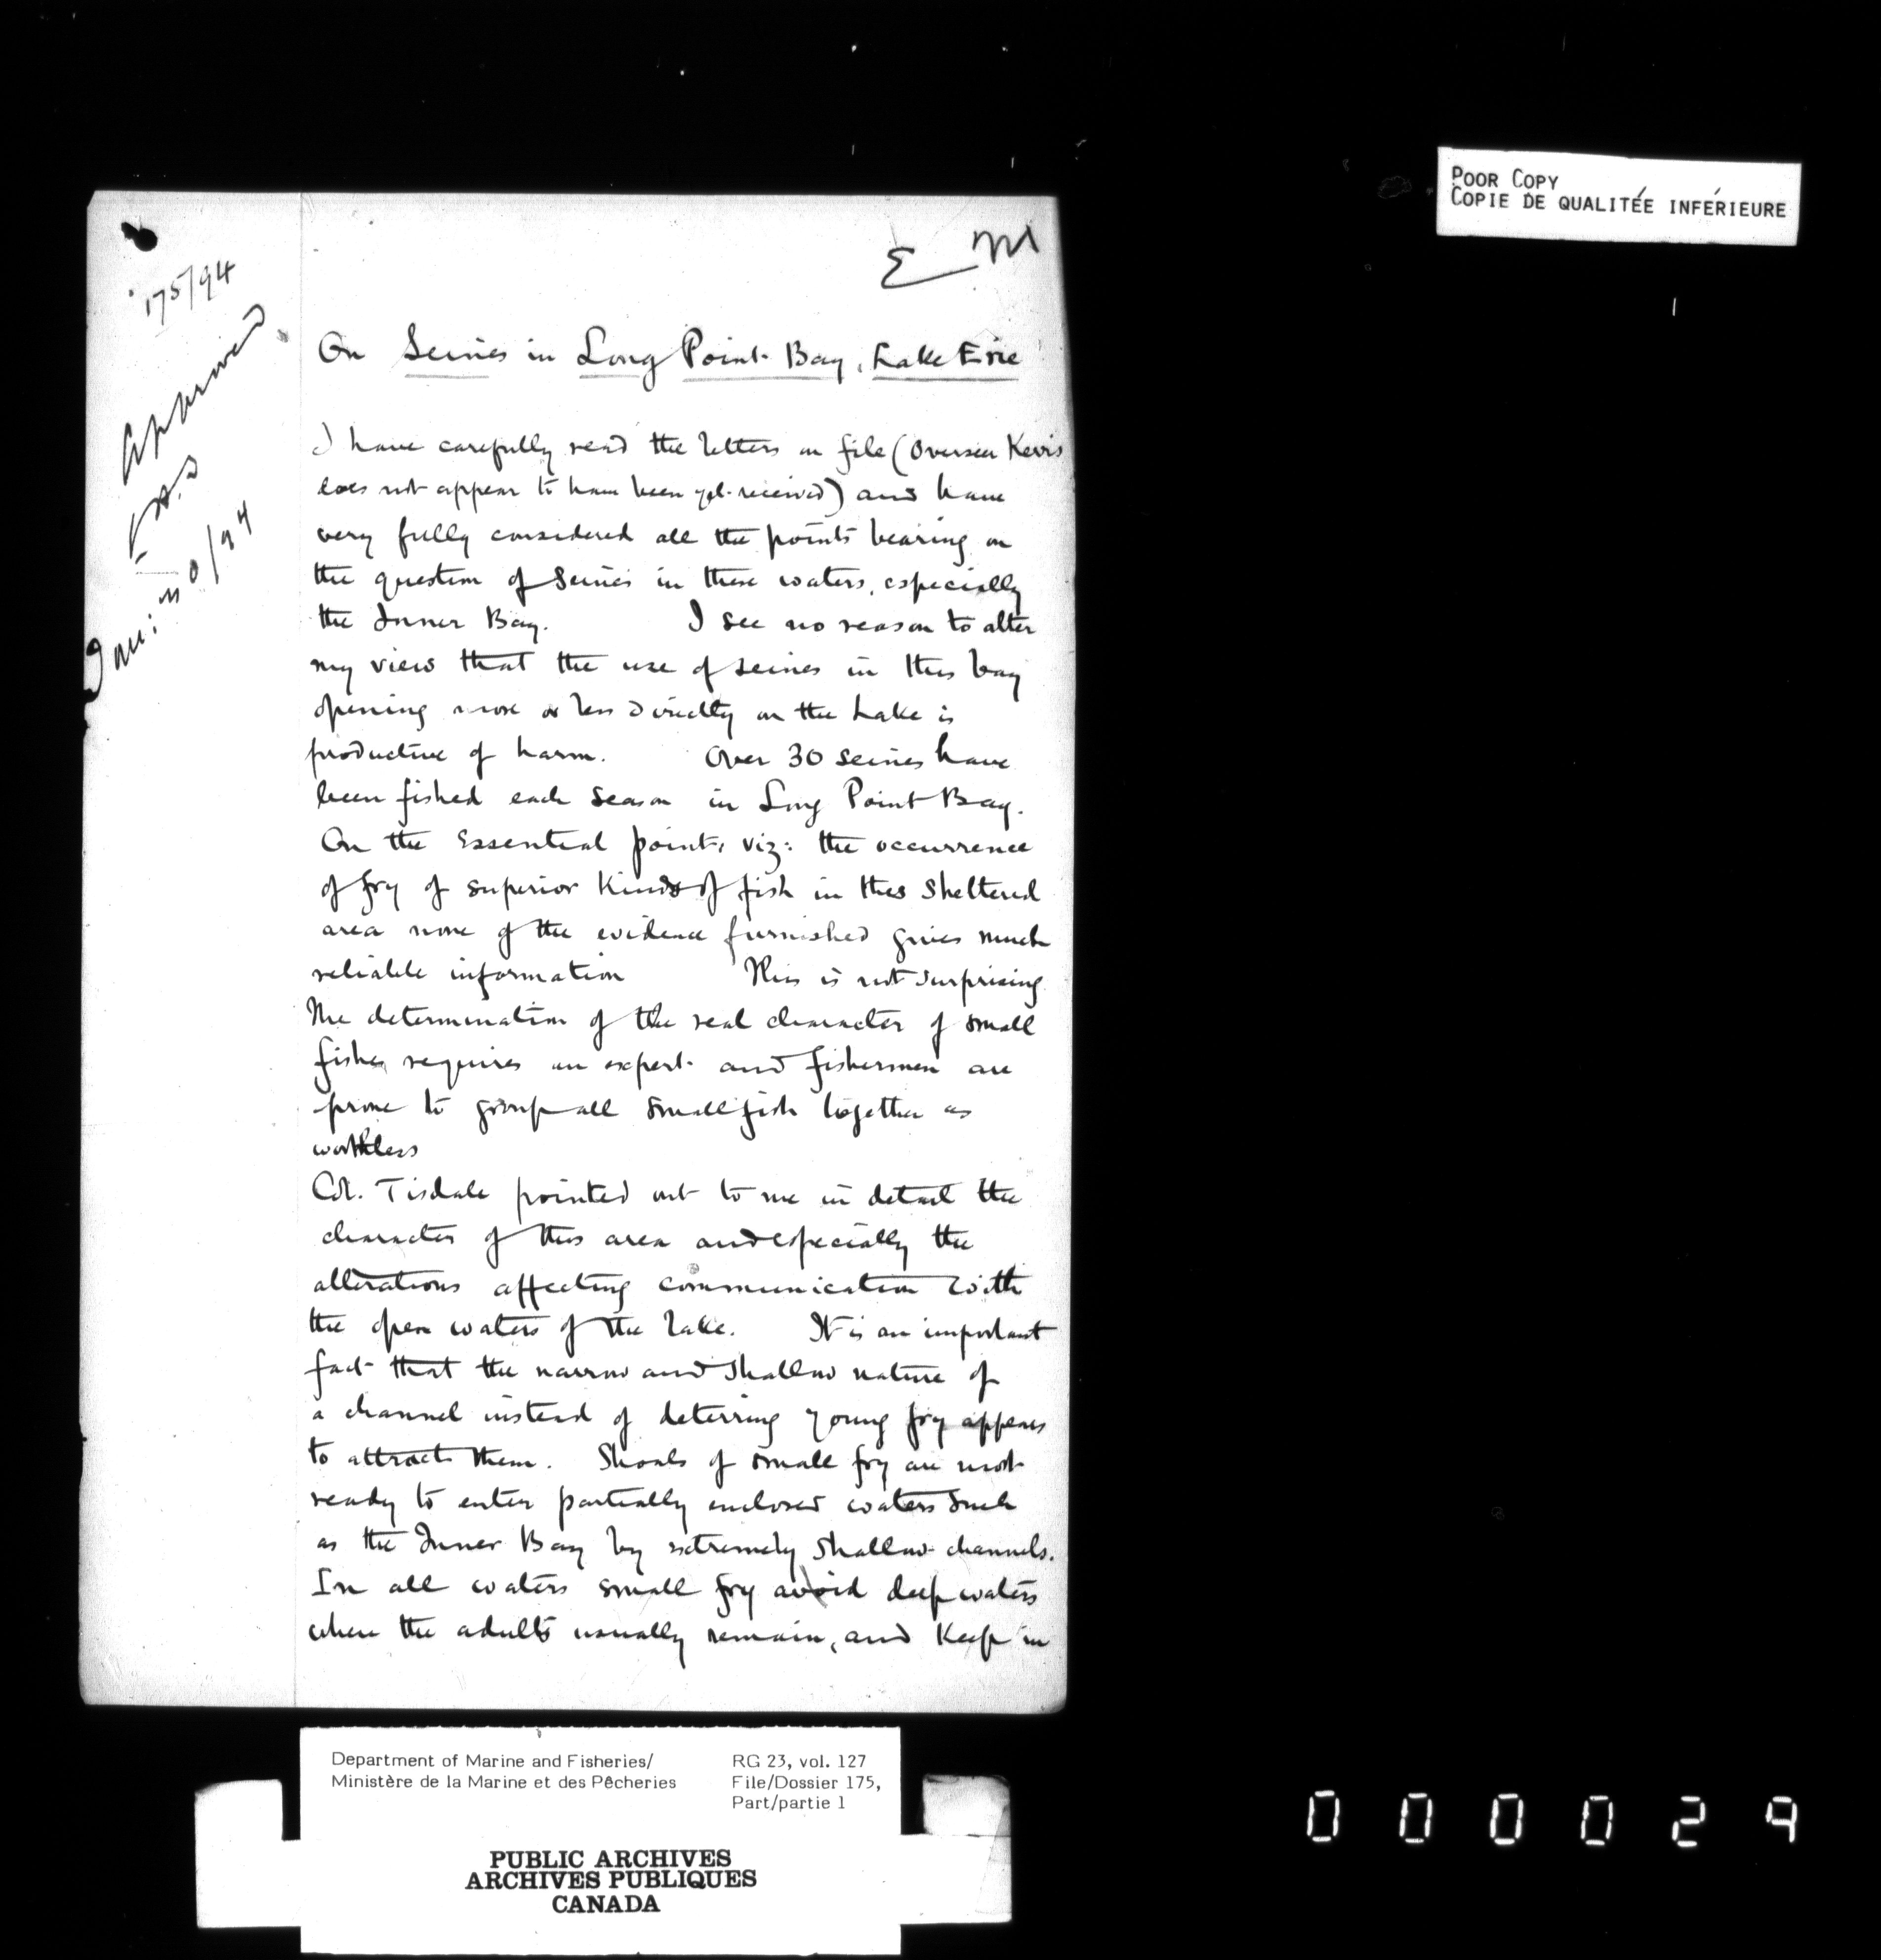 POOR COPY
COPIE DE QUALITÉE INFÉRIEURE
175/94
Approved
Jan: 10/94
E M
On Seines in Long Point Bay, Lake Erie
I have carefully read the letters on file (Overseer Kevis
does not appear to have been yet received) and have
very fully considered all the points bearing on
the question of Seines in these waters, especially
the Inner Bay. I see no reason to alter
my view that the use of seines in this bay
opening more or less directly on the Lake is
productive of harm. Over 30 seines have
been fished each season in Long Point Bay.
On the Essential point, viz: the occurrence
of fry of superior kinds of fish in this sheltered
area none of the evidence furnished gives much
reliable information This is not surprising
The determination of the real character of small
fishes requires an expert and fishermen are
prone to group all small fish together as
worthless
Col. Tisdale pointed out to me in detail the
character of this area and especially the
alterations affecting communication with
the open waters of the Lake. It is an important
fact that the narrow and shallow nature of
a channel instead of deterring young fry appears
to attract them. Shoals of small fry are most
ready to enter partially enclosed waters such
as the Inner Bay by extremely shallow channels.
In all waters small fry avoid deep waters
where the adults usually remain, and keep in
Department of Marine and Fisheries/
Ministère de la Marine et des Pêcheries
RG 23, vol. 127
File/Dossier 175,
Part/partie 1
PUBLIC ARCHIVES
ARCHIVES PUBLIQUES
CANADA
000029